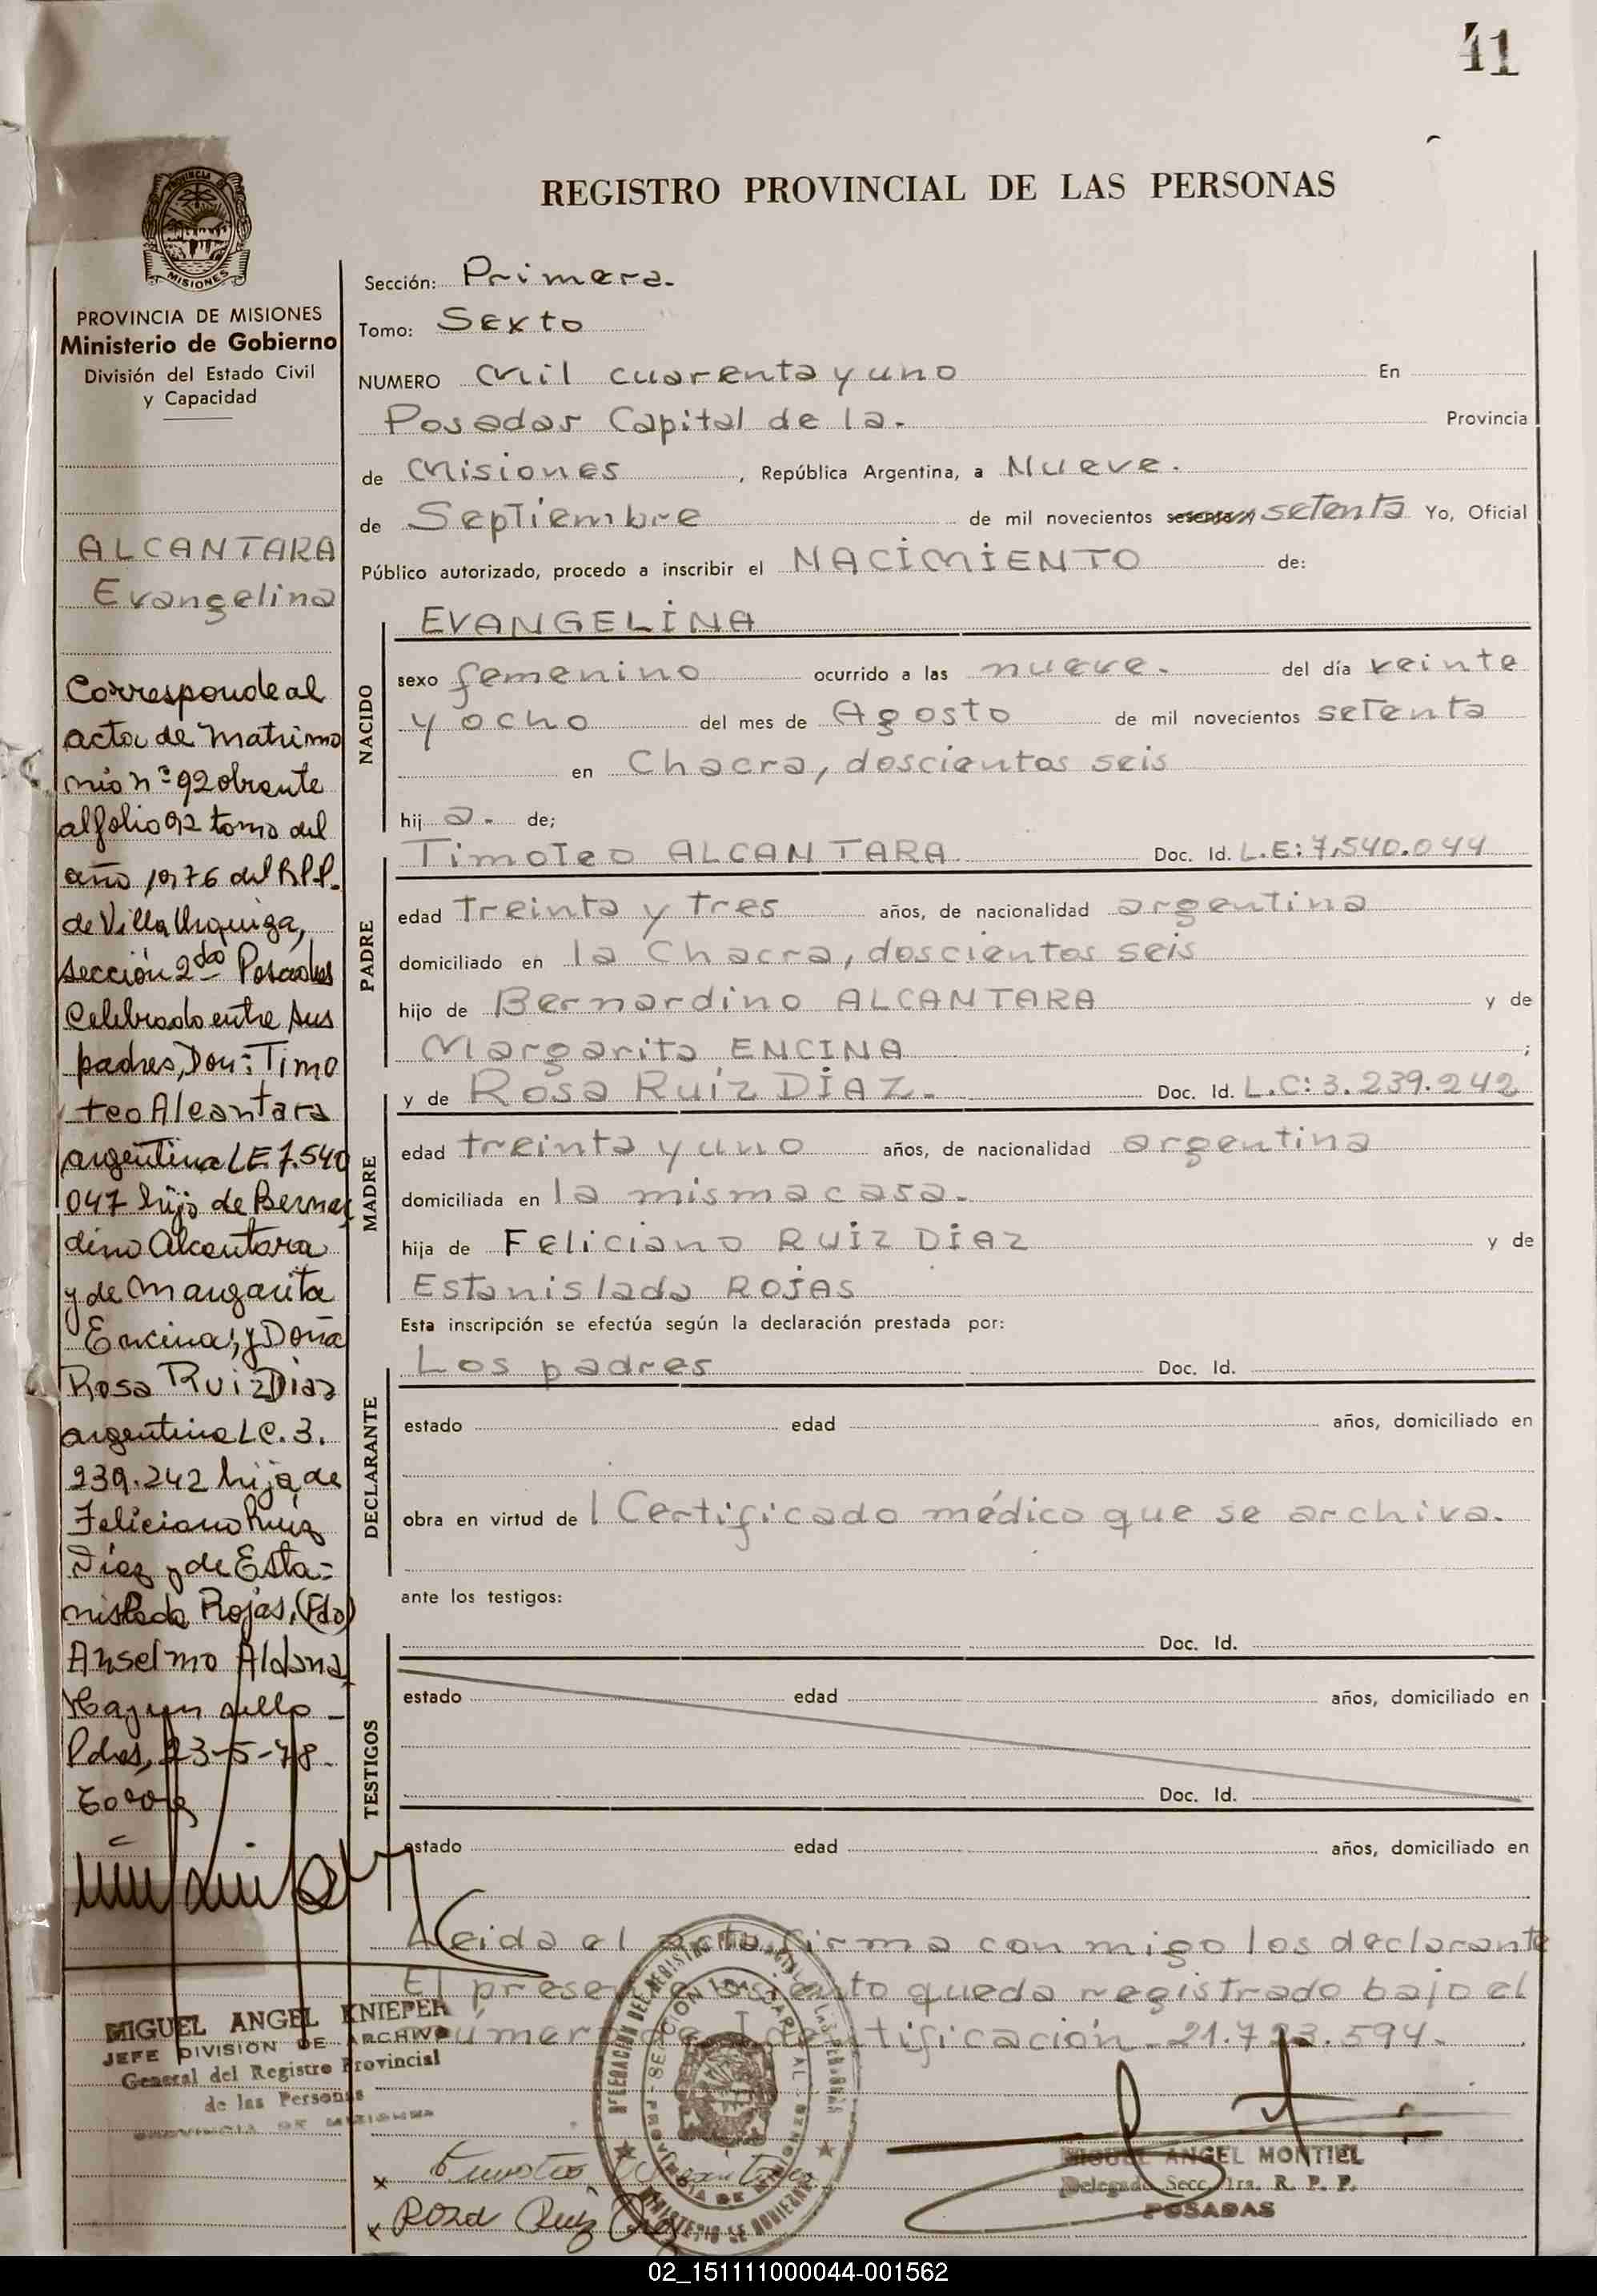 41
REGISTRO PROVINCIAL DE LAS PERSONAS
PROVINCIA DE MISIONES
Ministerio de Gobierno
División del Estado Civil
y Capacidad
ALCANTARA
Evangelina
Corresponde al
acta de Matrimo
nio nº 92 obrante
al folio 92 tomo del
año 1976 del R.P.P.
de Villa Urquiza,
sección 2da Posadas
Celebrado entre sus
padres, Don: Timo
teo Alcantara
argentino LE 7.540
047 hijo de Bernar
dino Alcantara
y de Margarita
Encina; y Doña
Rosa Ruiz Diaz
argentina LC. 3.
239.242 hija de
Feliciano Ruiz
Díaz y de Esta=
nislada Rojas, (Fdo)
Anselmo Aldana
Hay un sello
Pdas, 23-5-78
MIGUEL ANGEL KNIEPER
JEFE DIVISION DE ARCHIVO
General del Registro Provincial
de las Personas
PROVINCIA DE MISIONES
Sección: Primera.
Tomo: Sexto
NUMERO Mil cuarenta y uno En
Posadas Capital de la. Provincia
de Misiones , República Argentina, a Nueve.
de Septiembre de mil novecientos setenta Yo, Oficial
Público autorizado, procedo a inscribir el NACIMIENTO de:
NACIDO
EVANGELINA
sexo femenino ocurrido a las nueve. del día veinte
y ocho del mes de Agosto de mil novecientos setenta
en Chacra, doscientos seis
hij a. de;
PADRE
Timoteo ALCANTARA Doc. Id. L.E: 7.540.044
edad treinta y tres años, de nacionalidad argentina
domiciliado en la Chacra, doscientos seis
hijo de Bernardino ALCANTARA y de
Margarita ENCINA ;
MADRE
y de Rosa Ruiz DIAZ. Doc. Id. L.C: 3.239.242
edad treinta y uno años, de nacionalidad argentina
domiciliada en la misma casa.
hija de Feliciano RUIZ DIAZ y de
Estanislada ROJAS
Esta inscripción se efectúa según la declaración prestada por:
DECLARANTE
Los padres Doc. Id.
estado edad años, domiciliado en
obra en virtud de l Certificado médico que se archiva.
ante los testigos:
TESTIGOS
Doc. Id.
estado edad años, domiciliado en
Doc. Id.
estado edad años, domiciliado en
Leida el acta, firma con migo los declarante
El presente asiento queda registrado bajo el
número de Identificación 21.723.594.
Rosa Ruiz Diaz
MIGUEL ANGEL MONTIEL
Delegado Secc. 1ra. R. P. P.
POSADAS
02_151111000044-001562